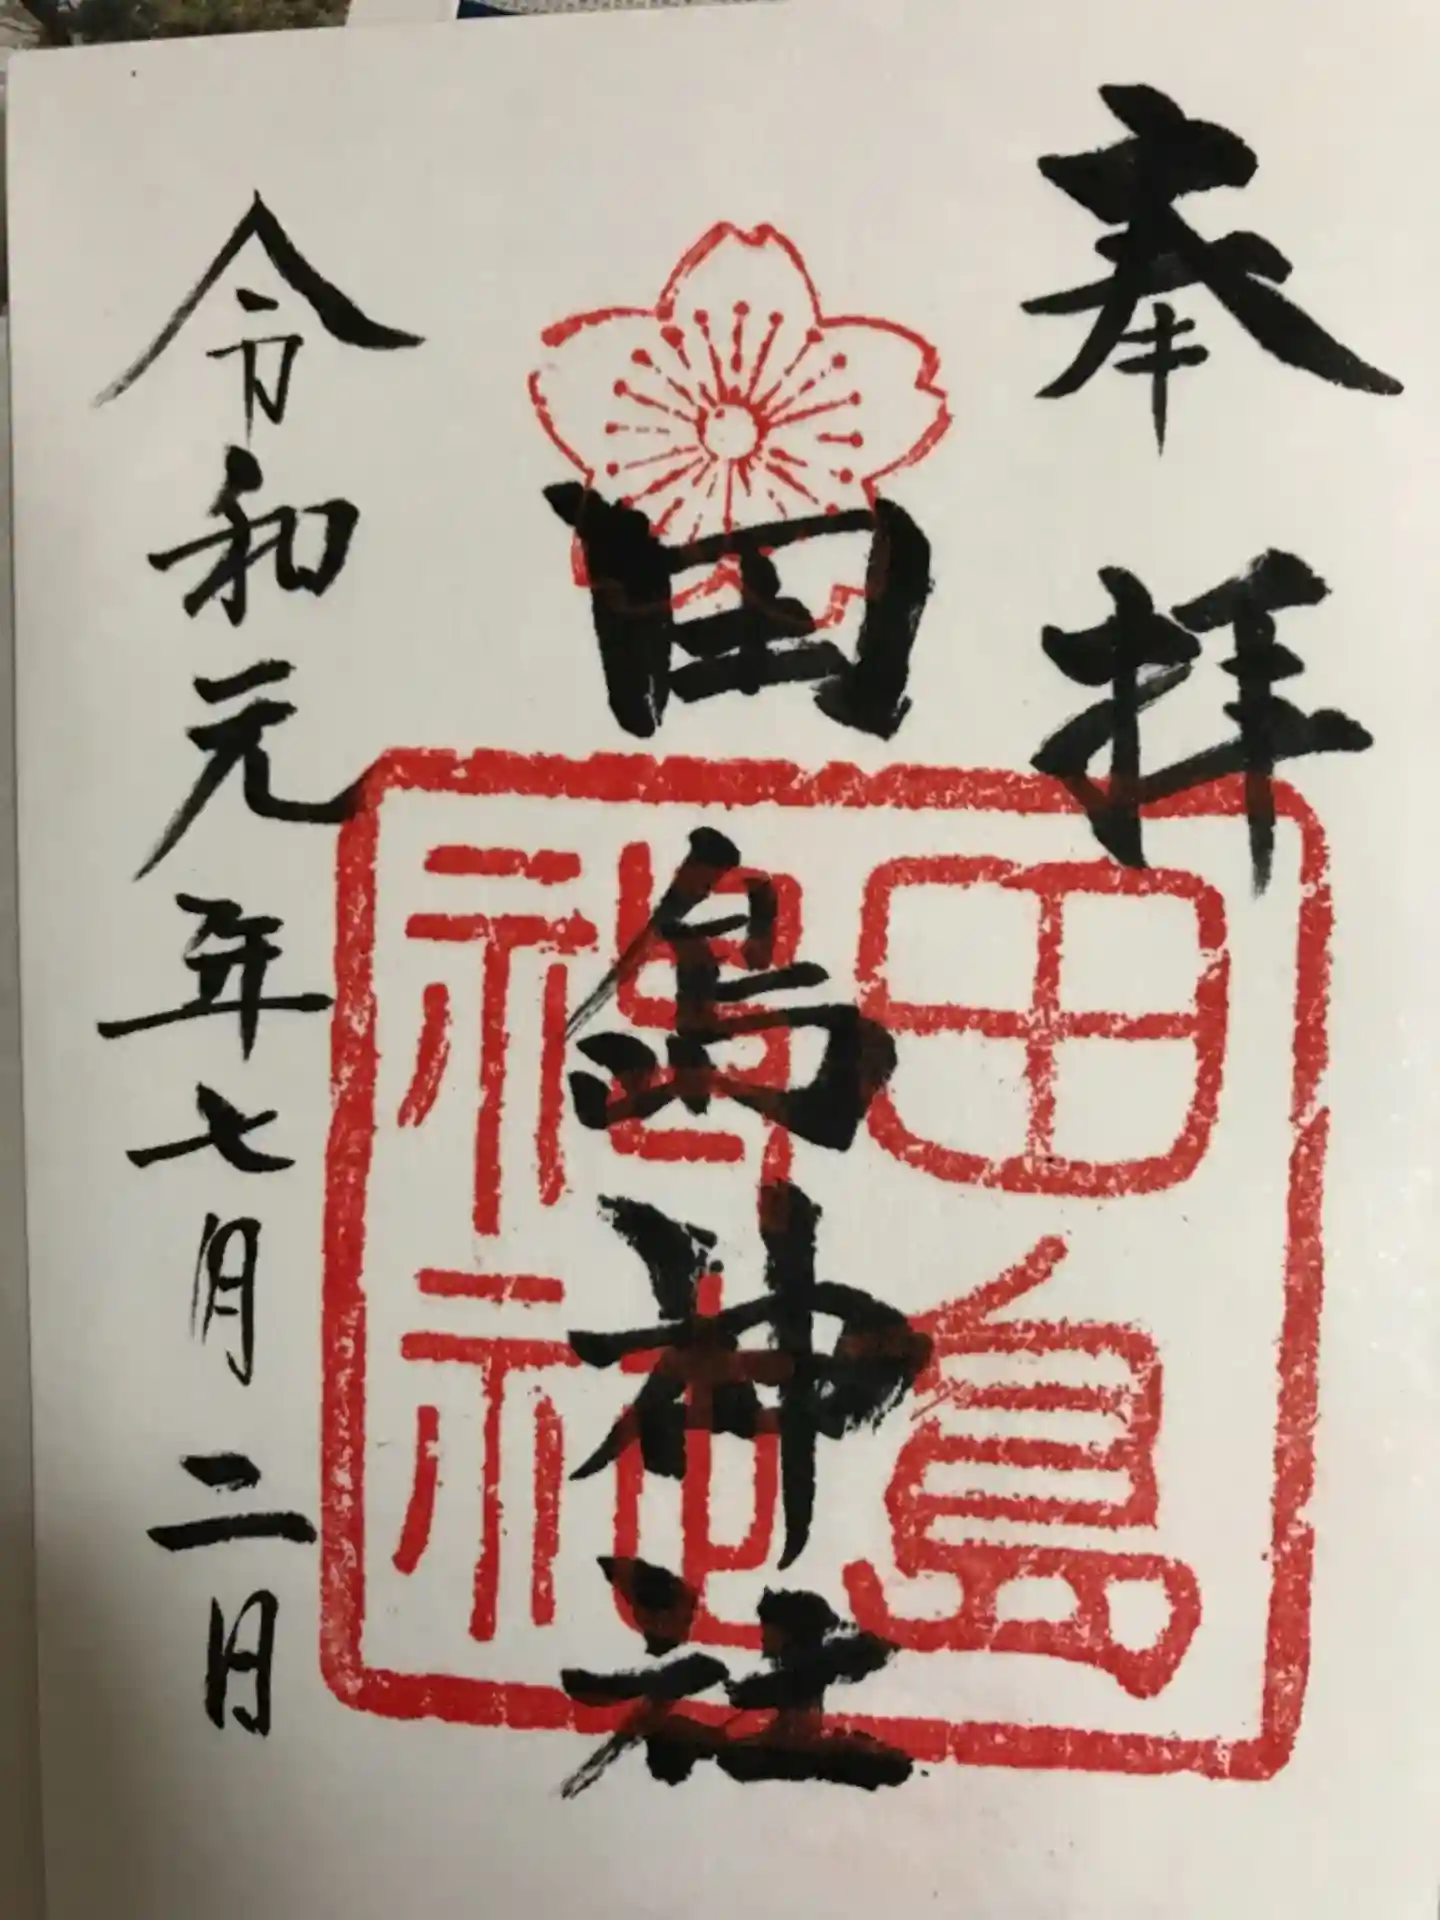 奉拝
田嶋神社
田島神社
令和元年七月二日